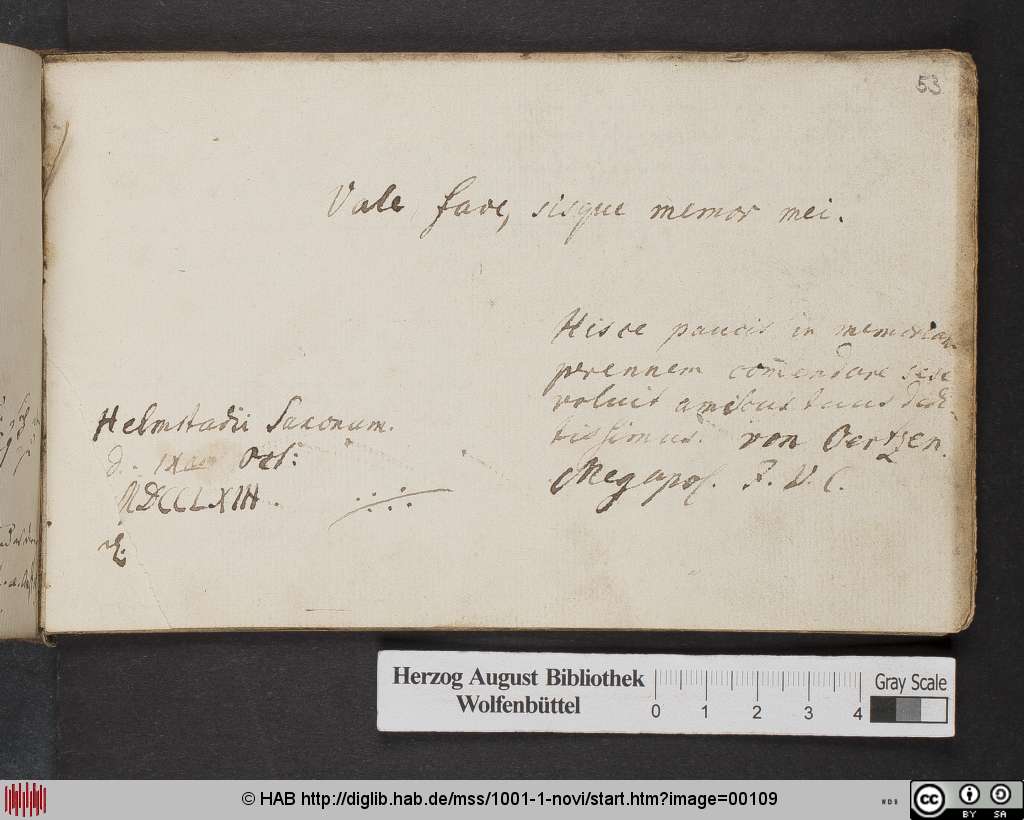 53
Vale, fave, sisque memor mei.
Hisce paucis in memoriam
perennem com̄endare sese
voluit amicus tuus dedi-
tissimus. von Oertzen.
Megapol.
Helmstadii Saxonum.
d. IX Oct:
MDCCLXIII.
Herzog August Bibliothek
Wolfenbüttel
0 1 2 3 4
Gray Scale
© HAB http://diglib.hab.de/mss/1001-1-novi/start.htm?image=00109
cc BY SA